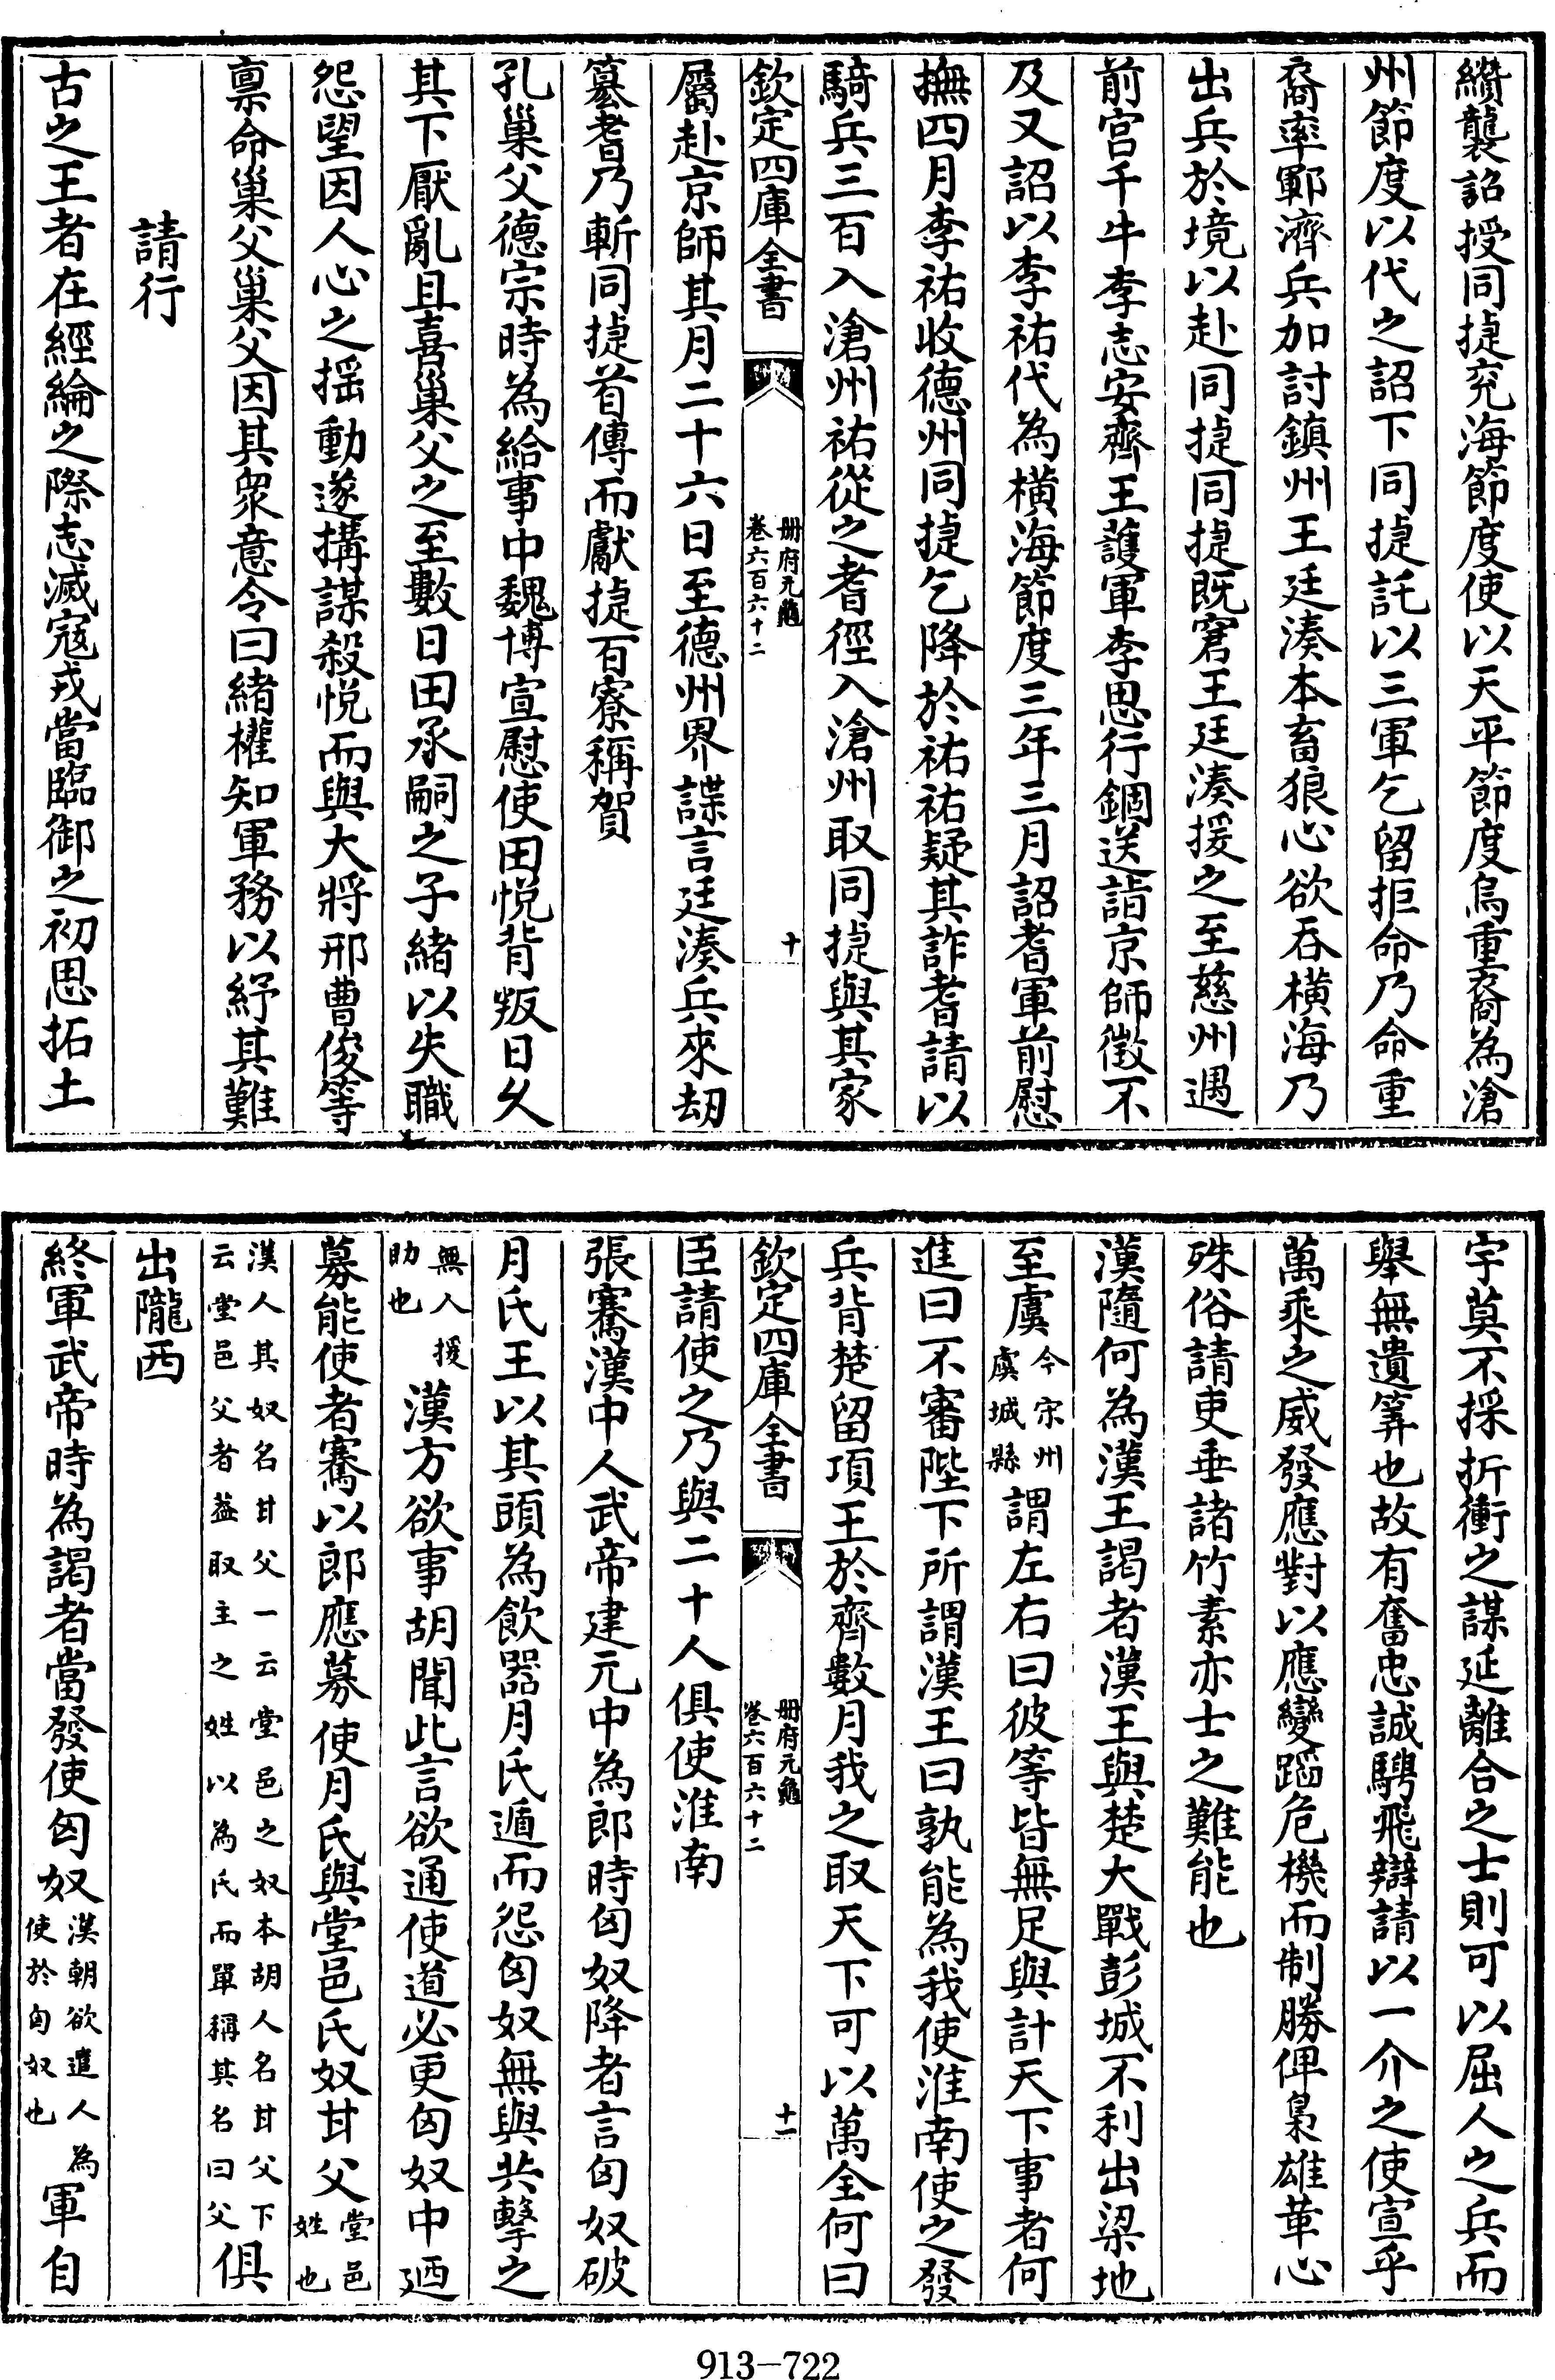 纘襲詔授同捷兖海節度使以天平節度烏重裔為滄
州節度以代之詔下同捷託以三軍乞留拒命乃命重
裔率鄆濟兵加討鎮州王廷湊本畜狼心欲吞横海乃
出兵於境以赴同捷同捷既窘王廷湊援之至慈州遇
前宫千牛李志安齊王䕶軍李思行錮送詣京師徴不
及又詔以李祐代為横海節度三年三月詔耆軍前慰
撫四月李祐收德州同捷乞降於祐祐疑其詐耆請以
騎兵三百入滄州祐從之耆徑入滄州取同捷與其家
欽定四庫全書
册府元龜
卷六百六十二
十
屬赴京師其月二十六日至德州界諜言廷湊兵來刼
簒耆乃斬同捷首傳而獻捷百寮稱賀
孔巢父德宗時為給事中魏博宣慰使田悦背叛日久
其下厭亂且喜巢父之至數日田承嗣之子緒以失職
怨望因人心之揺動遂搆謀殺悦而與大將邢曹俊等
稟命巢父巢父因其衆意令曰緒權知軍務以紓其難
請行
古之王者在經綸之際志滅寇戎當臨御之初思拓土
宇莫不採折衝之謀延離合之士則可以屈人之兵而
舉無遺筭也故有奮忠誠騁飛辯請以一介之使宣乎
萬乘之威發應對以應變蹈危機而制勝俾梟雄革心
殊俗請吏垂諸竹素亦士之難能也
漢隨何為漢王謁者漢王與楚大戰彭城不利出梁地
至虞今宋州虞城縣謂左右曰彼等皆無足與計天下事者何
進曰不審陛下所謂漢王曰孰能為我使淮南使之發
兵背楚留項王於齊數月我之取天下可以萬全何曰
欽定四庫全書
册府元龜
卷六百六十二
十一
臣請使之乃與二十人俱使淮南
張騫漢中人武帝建元中為郎時匈奴降者言匈奴破
月氏王以其頭為飲器月氏遁而怨匈奴無與共擊之
無人援助也漢方欲事胡聞此言欲通使道必更匈奴中廼
募能使者騫以郎應募使月氏與堂邑氏奴甘父堂邑姓也
漢人其奴名甘父一云堂邑之奴本胡人名甘父下云堂邑父者葢取主之姓以為氏而單稱其名曰父俱
出隴西
終軍武帝時為謁者當發使匈奴漢朝欲遣人為使於匈奴也軍自
913-722